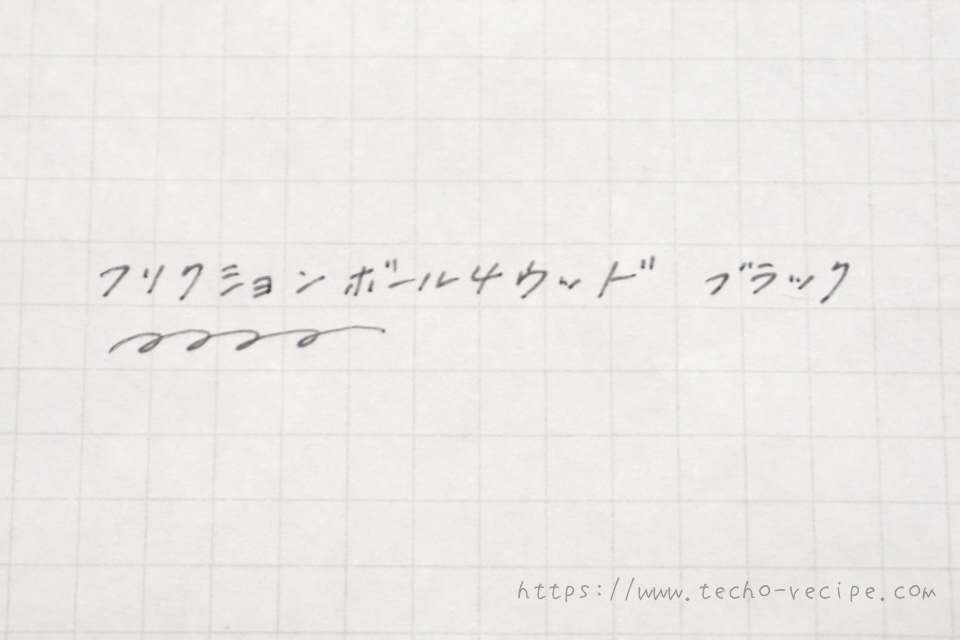 フリクションボール4ウッド ブラック
https://www.techo-recipe.com